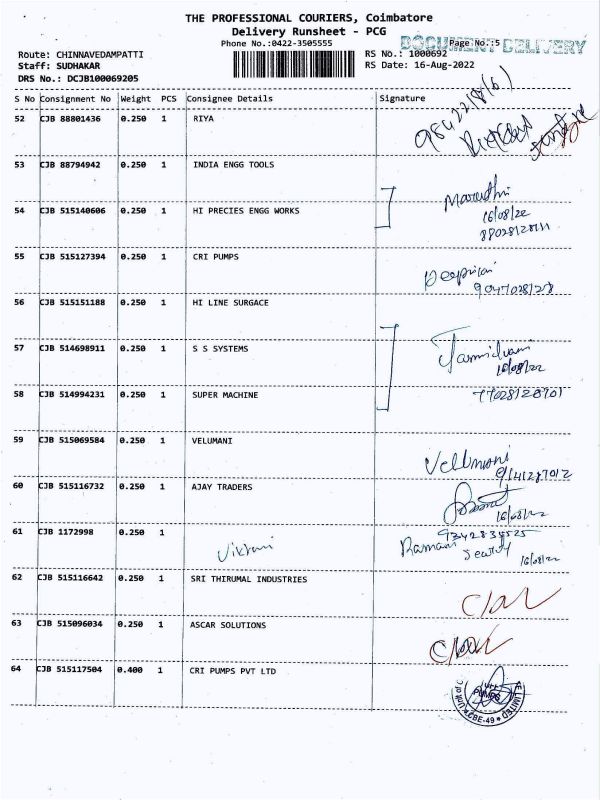 THE PROFESSIONAL COURIERS, Coimbatore
Delivery Runsheet - PCG
Phone No.:0422-3505555
DOCUMENT DELIVERY
Page No.:5
Route: CHINNAVEDAMPATTI
RS No.: 1000692
Staff: SUDHAKAR
RS Date: 16-Aug-2022
DRS No.: DCJB100069205
S No Consignment No Weight PCS Consignee Details Signature
52 CJB 88801436 0.250 1 RIYA
53 CJB 88794942 0.250 1 INDIA ENGG TOOLS
54 CJB 515140606 0.250 1 HI PRECIES ENGG WORKS
16/08/22
55 CJB 515127394 0.250 1 CRI PUMPS
56 CJB 515151188 0.250 1 HI LINE SURGACE
57 CJB 514698911 0.250 1 S S SYSTEMS
16/08/22
58 CJB 514994231 0.250 1 SUPER MACHINE
59 CJB 515069584 0.250 1 VELUMANI
Vellmani
60 CJB 515116732 0.250 1 AJAY TRADERS
16/08/22
61 CJB 1172998 0.250 1
Ramani
16/08/22
62 CJB 515116642 0.250 1 SRI THIRUMAL INDUSTRIES
63 CJB 515096034 0.250 1 ASCAR SOLUTIONS
64 CJB 515117504 0.400 1 CRI PUMPS PVT LTD
PUMPS
CBE-49